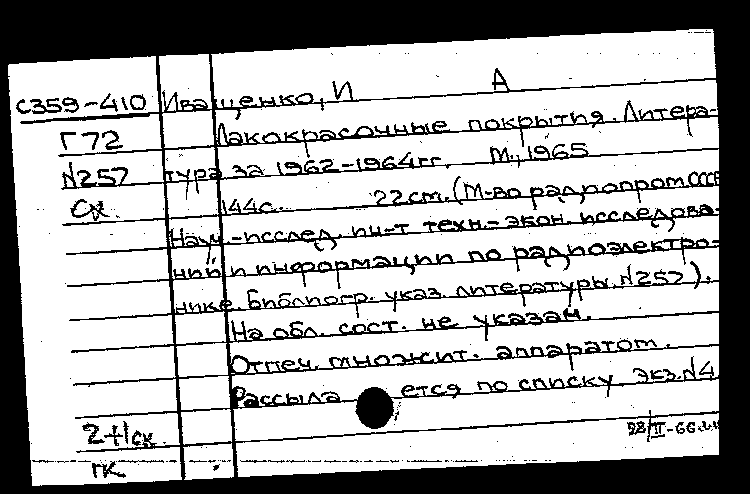 С359-410 Иващенко, И А
Г72 Лакокрасочные покрытия. Литера-
N257 тура за 1962-1964гг. М., 1965
Ск. 144с. 22см. (М-во радиопром СССР
Науч.-исслед. ин-т техн.-экон. исследова-
ний и информации по радиоэлектро-
нике. Библиогр. указ. литературы. N257).
На обл. сост. не указан.
Отпеч. множит. аппаратом.
Рассылается по списку экз. N4
2+1ск 28/II-66
ГК